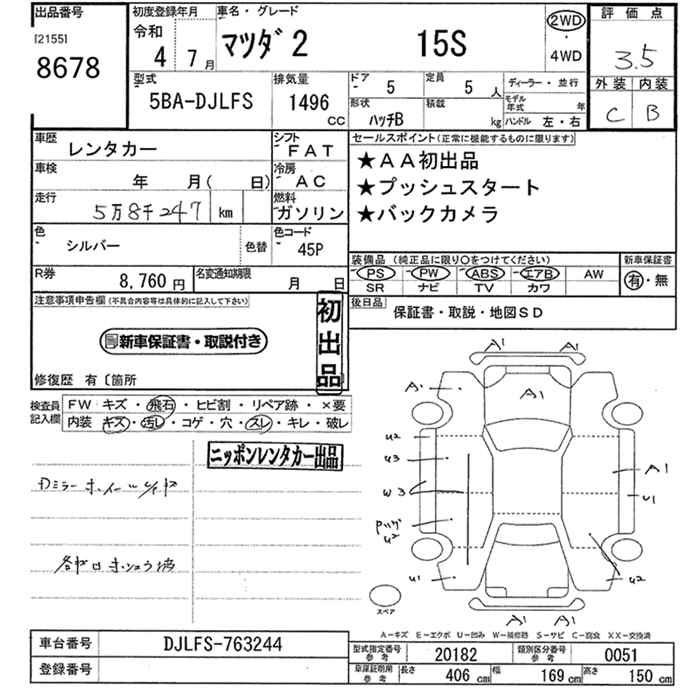 出品番号
[2155]
8678
初度登録年月
令和
4 7月
車名・グレード
マツダ2 15S
2WD
・
4WD
評価点
3.5
外装 内装
C B
型式
5BA-DJLFS
排気量
1496
CC
ドア
5
定員
5 人
形状
ハッチB
積載
kg
ディーラー・並行
モデル年式 年
ハンドル 左・右
車歴
レンタカー
シフト
FAT
車検
年 月( 日)
冷房
AC
走行
5万8千247 km
燃料
ガソリン
色
シルバー
色替
色コード
45P
R券
8,760 円
名変通知期限
月 日
セールスポイント(正常に機能するものに限ります)
★AA初出品
★プッシュスタート
★バックカメラ
装備品 (純正品に限り○をつけてください)
新車保証書
PS PW ABS エアB AW
SR ナビ TV カワ
有・無
後日品
保証書・取説・地図SD
注意事項申告欄(不具合内容等は具体的に記入して下さい)
新車保証書・取説付き
初出品
修復歴 有〔箇所
検査員記入欄
FW キズ・飛石・ヒビ割・リペア跡・×要
内装 キズ・汚レ・コゲ・穴・スレ・キレ・破レ
ニッポンレンタカー出品
A1 A1
A1 A1
U2
U3
W3
U2
U1
A1
U1
U2
A1 A1
スペア
A-キズ E-エクボ U-凹み W-補修跡 S-サビ C-腐食 XX-交換済
車台番号
DJLFS-763244
登録番号
型式指定番号参考
20182
類別区分番号参考
0051
車庫証明用参考
長さ 406 cm 幅 169 cm 高さ 150 cm